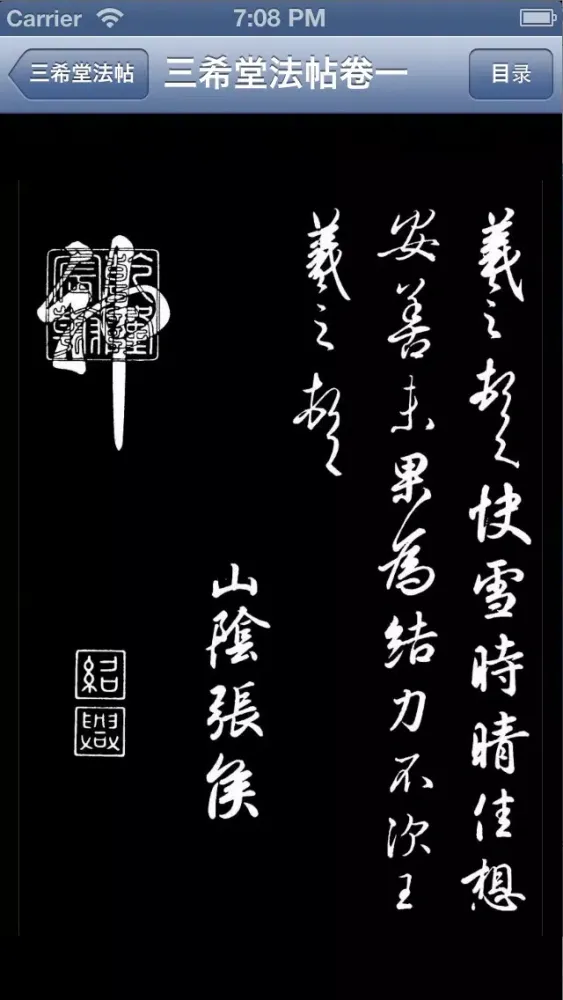 Carrier 7:08 PM
三希堂法帖 三希堂法帖卷一 目录
羲之頓首快雪時晴佳想
安善未果為結力不次王
羲之頓首
山陰張侯
神
乾隆宸翰
紹興